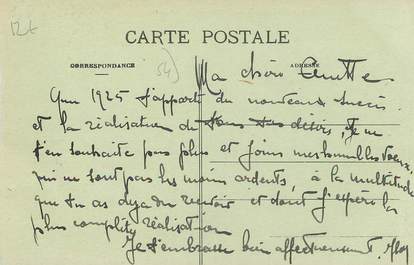 12€
CARTE POSTALE
CORRESPONDANCE
54)
ADRESSE
Ma chère
Que 1925 t'apporte du nouveaux succès
et la réalisation de tous tes désirs, Je ne
t'en souhaite pas plus et joins mes humbles vœux,
qui ne sont pas les moins ardents, à la multitude
que tu as dejà du recevoir et dont j'espère la
plus complète réalisation
Je t'embrasse bien affectueusement.